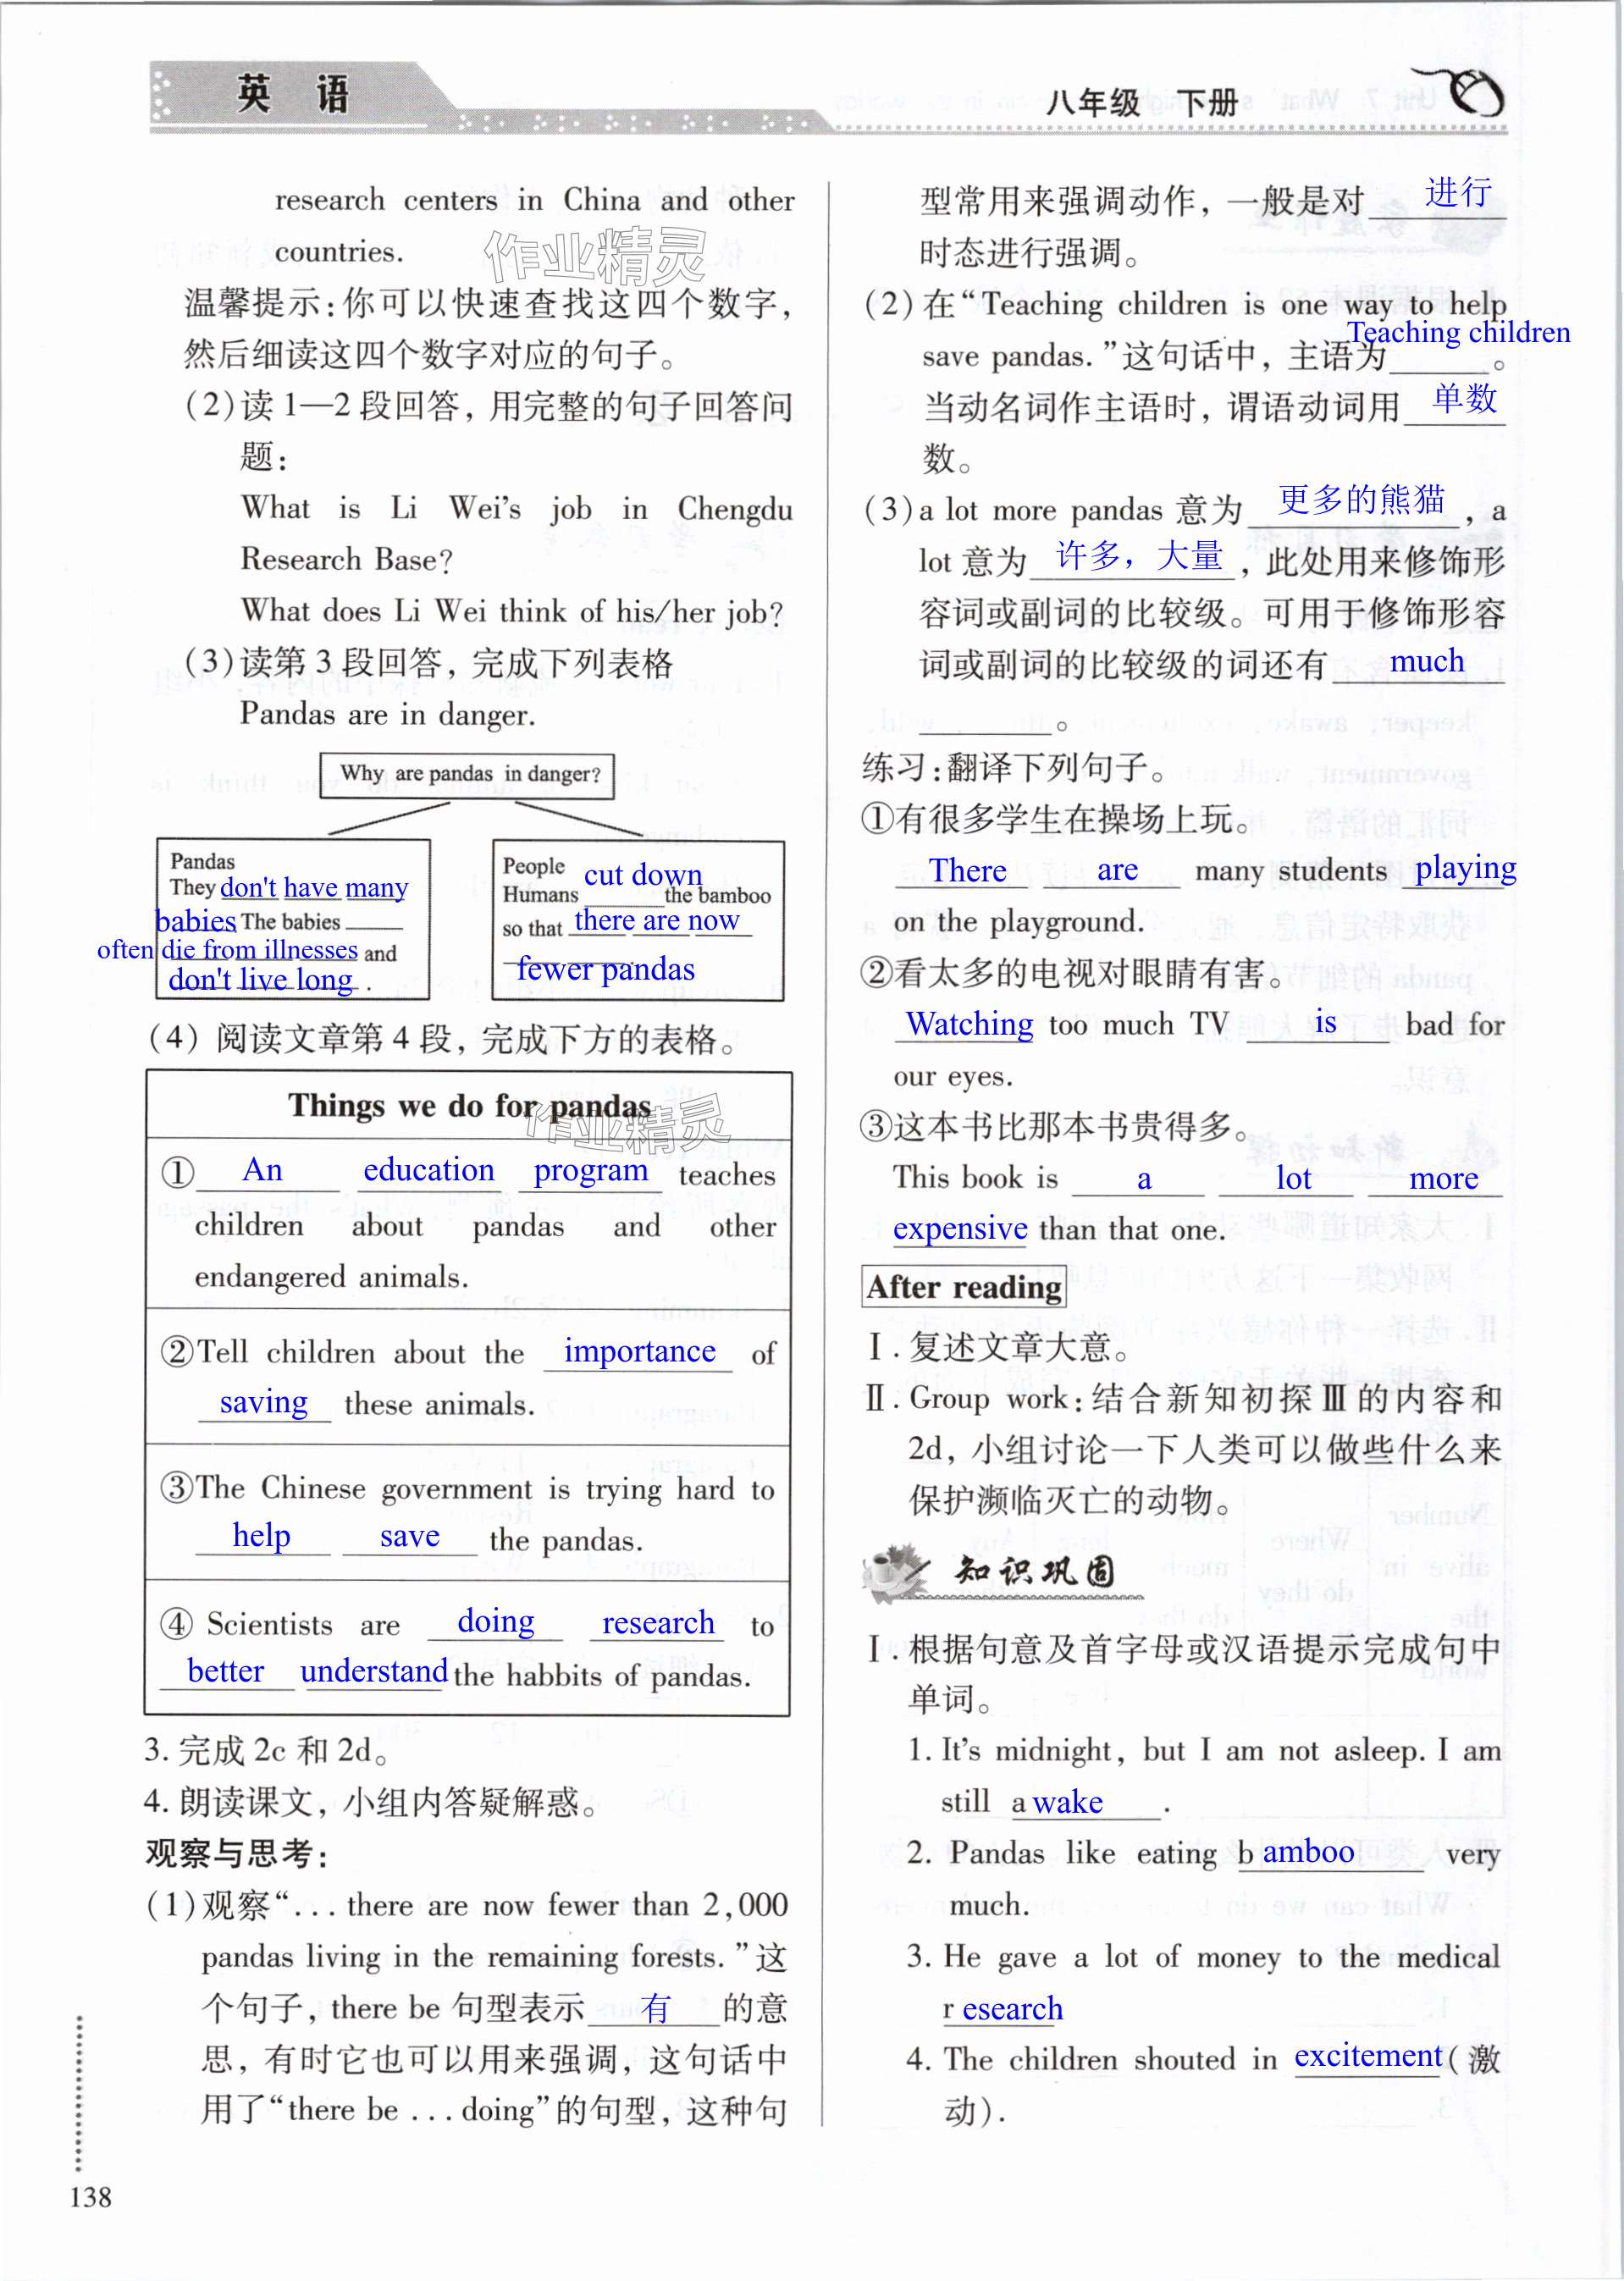 英 语
八年级 下册
research centers in China and other
countries.
作业精灵
温馨提示:你可以快速查找这四个数字,
然后细读这四个数字对应的句子。
(2)读1—2段回答, 用完整的句子回答问
题:
What is Li Wei's job in Chengdu
Research Base?
What does Li Wei think of his/her job?
(3)读第3段回答, 完成下列表格
Pandas are in danger.
Why are pandas in danger?
Pandas
They don't have many
babies The babies
often die from illnesses and
don't live long .
People
Humans cut down the bamboo
so that there are now
fewer pandas
(4) 阅读文章第4段, 完成下方的表格。
Things we do for pandas
作业精灵
① An education program teaches
children about pandas and other
endangered animals.
②Tell children about the importance of
saving these animals.
③The Chinese government is trying hard to
help save the pandas.
④ Scientists are doing research to
better understand the habbits of pandas.
3. 完成2c和2d。
4. 朗读课文, 小组内答疑解惑。
观察与思考:
(1)观察“... there are now fewer than 2,000
pandas living in the remaining forests.”这
个句子, there be 句型表示 有 的意
思, 有时它也可以用来强调, 这句话中
用了“there be ... doing”的句型, 这种句
138
型常用来强调动作, 一般是对 进行
时态进行强调。
(2)在“Teaching children is one way to help
save pandas.”这句话中, 主语为 Teaching children 。
当动名词作主语时, 谓语动词用 单数
数。
(3)a lot more pandas 意为 更多的熊猫 , a
lot 意为 许多，大量 , 此处用来修饰形
容词或副词的比较级。可用于修饰形容
词或副词的比较级的词还有 much
。
练习:翻译下列句子。
①有很多学生在操场上玩。
There are many students playing
on the playground.
②看太多的电视对眼睛有害。
Watching too much TV is bad for
our eyes.
③这本书比那本书贵得多。
This book is a lot more
expensive than that one.
After reading
Ⅰ. 复述文章大意。
Ⅱ. Group work:结合新知初探Ⅲ的内容和
2d, 小组讨论一下人类可以做些什么来
保护濒临灭亡的动物。
知识巩固
Ⅰ. 根据句意及首字母或汉语提示完成句中
单词。
1. It's midnight, but I am not asleep. I am
still a wake .
2. Pandas like eating b amboo very
much.
3. He gave a lot of money to the medical
r esearch
4. The children shouted in excitement(激
动).